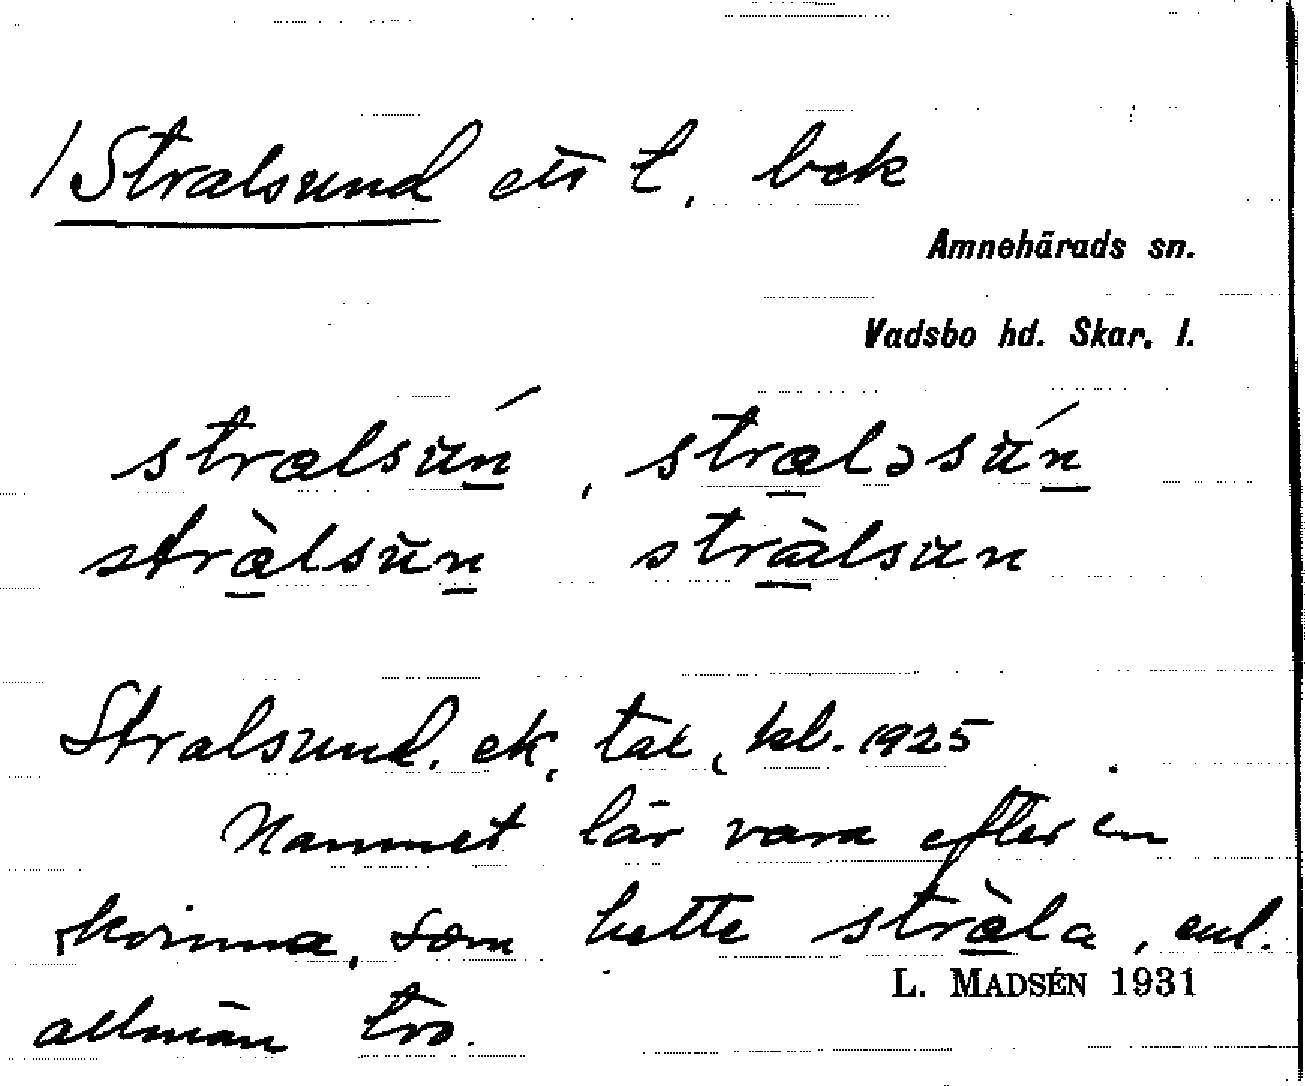 /Stralsund ett t, bek
Amnehärads sn.
Vadsbo hd. Skar. l.
stralsún, straləsún
stràlsun stràlsun
Stralsund. ek, tal, kl. 1925
Namnet lär vara efter en
kvinna, som hette stràla, enl.
L. MADSÉN 1931
allmän tro.